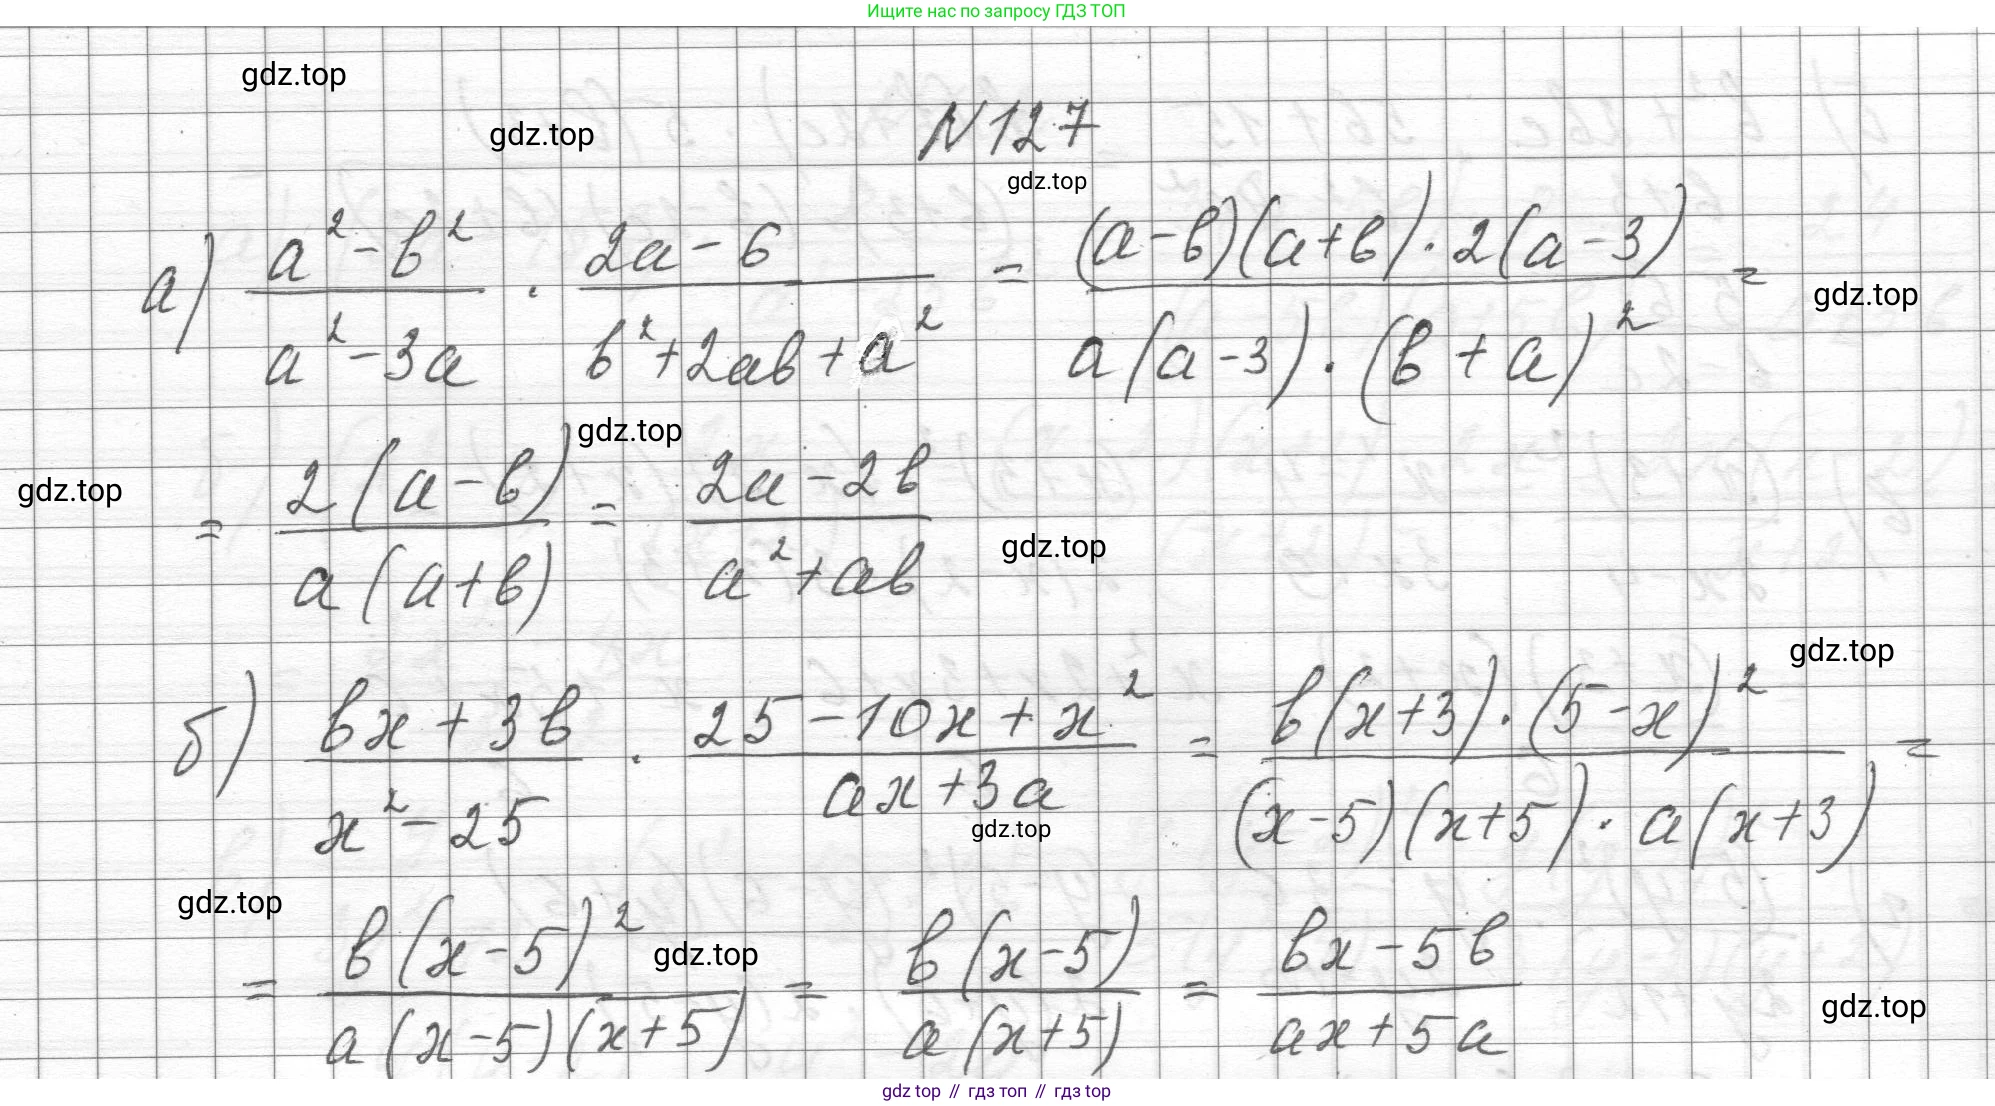 Ищите нас по запросу ГДЗ ТОП
gdz.top
gdz.top
N127
gdz.top
а) (a²-b²)/(a²-3a) · (2a-6)/(b²+2ab+a²) = ((a-b)(a+b)·2(a-3))/(a(a-3)·(b+a)²) =
gdz.top
gdz.top
gdz.top
= (2(a-b))/(a(a+b)) = (2a-2b)/(a²+ab)
gdz.top
gdz.top
б) (bx+3b)/(x²-25) · (25-10x+x²)/(ax+3a) = (b(x+3)·(5-x)²)/((x-5)(x+5)·a(x+3)) =
gdz.top
gdz.top
gdz.top
= (b(x-5)²)/(a(x-5)(x+5)) = (b(x-5))/(a(x+5)) = (bx-5b)/(ax+5a)
gdz.top
gdz top // гдз топ // гдз top